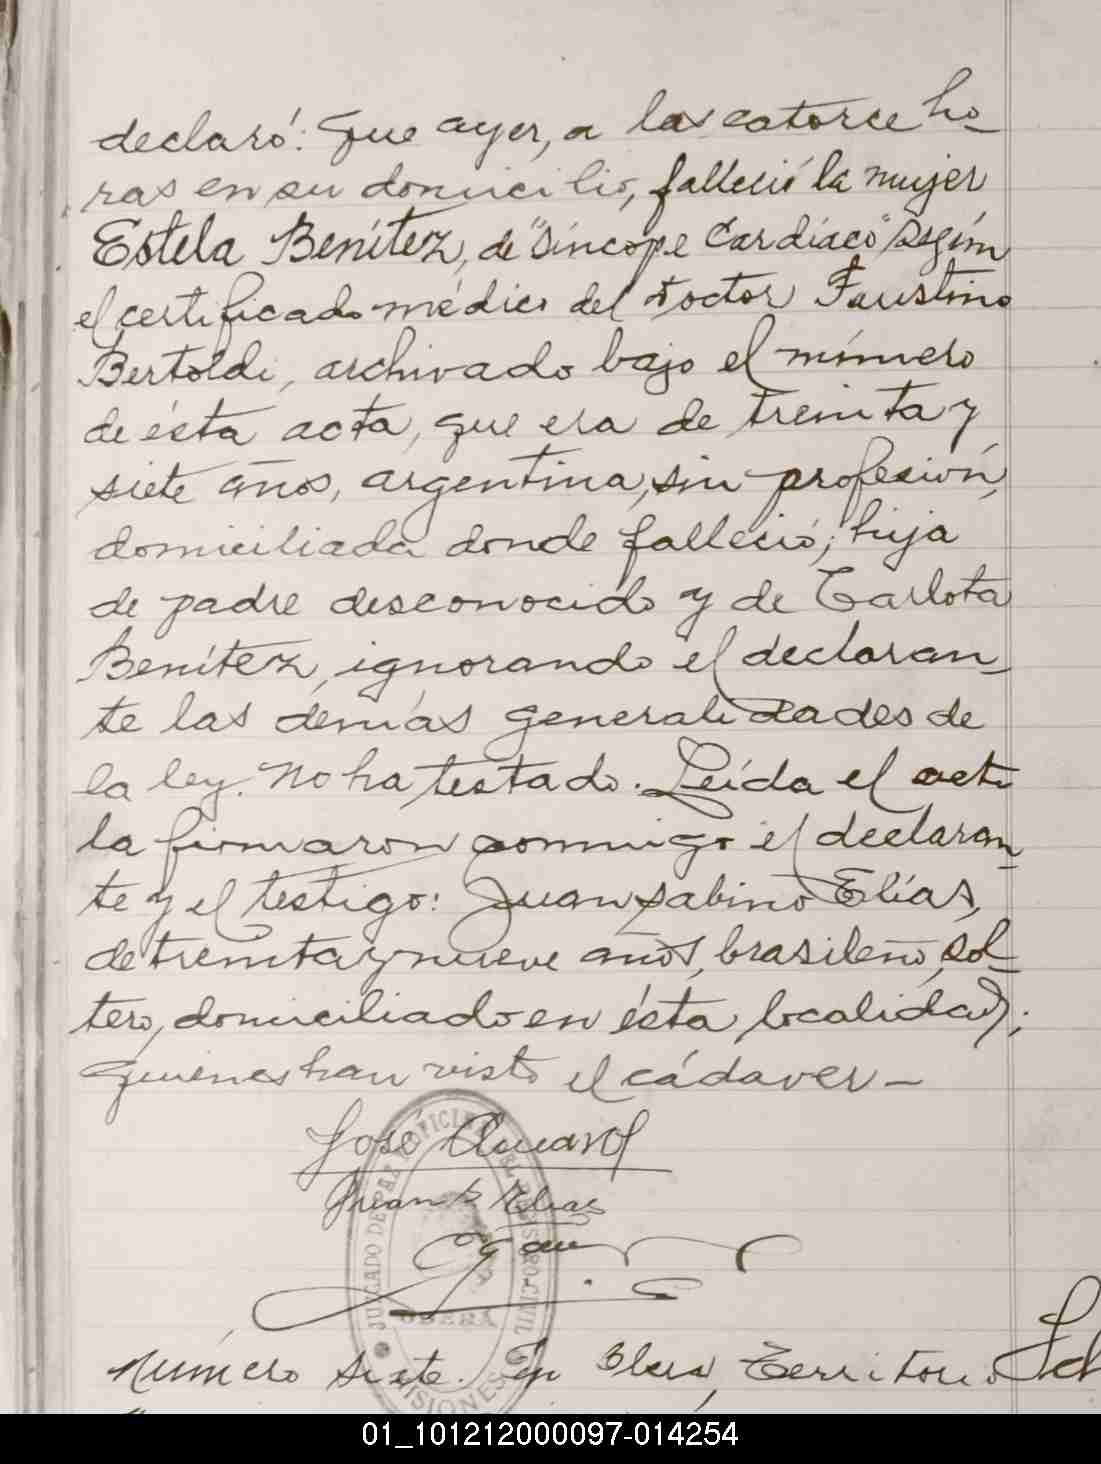 declaró: Que ayer, a las catorce ho-
ras en su domicilio, falleció la mujer
Estela Benítez, de "síncope cardíaco" según
el certificado médico del Doctor Faustino
Bertoldi, archivado bajo el número
de ésta acta, que era de treinta y
siete años, argentina, sin profesión,
domiciliada donde falleció; hija
de padre desconocido y de Carlota
Benítez, ignorando el declaran-
te las demás generalidades de
la ley. No ha testado. Leída el acta
la firmaron conmigo el declaran-
te y el testigo: Juan Sabino Elías,
de treinta y nueve años, brasileño, sol-
tero, domiciliado en ésta localidad;
quienes han visto el cádaver-
José
Juan S. Elías
JUZGADO DE PAZ
REGISTRO CIVIL
OBERA
MISIONES
Número siete. En Obera, Territorio
01_101212000097-014254